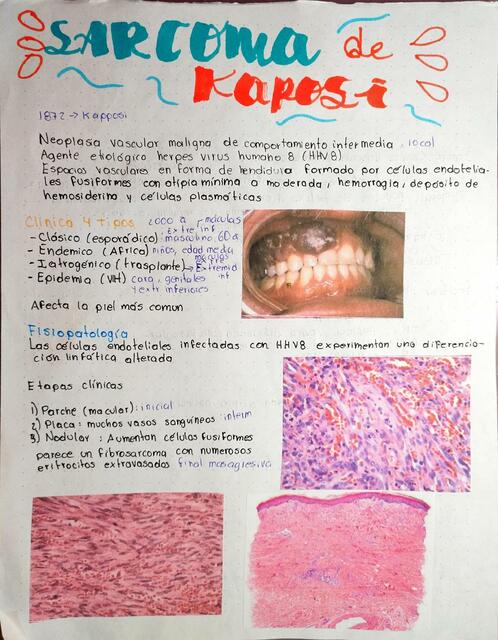 SARCOMA de
KAPOSI
1872 → Kapposi
Neoplasa vascular maligna de comportamiento intermedia, local
Agente etiológico herpes virus humano 8 (HHV8)
Espacios vasculares en forma de hendidura formado por células endotelia-
les fusiformes con atipia mínima a moderada, hemorragia, depósito de
hemosiderina y células plasmáticas
Clínica 4 tipos 2000 a maculas
- Clásico (esporádico): masculino 60a Extre inf
- Endemico (Africa) niños, edad media
- Iatrogénico (trasplante) → Extremid inf
- Epidemia (VH) cara, genitales
y extr inferiores
Afecta la piel más comun
Fisiopatología
Las células endoteliales infectadas con HHV8 experimentan una diferencia-
ción linfática alterada
Etapas clínicas
1) Parche (macular): inicial
2) Placa: muchos vasos sanguíneos: interm
3) Nodular: Aumentan células fusiformes
parece un fibrosarcoma con numerosos
eritrocitos extravasados final mas agresiva